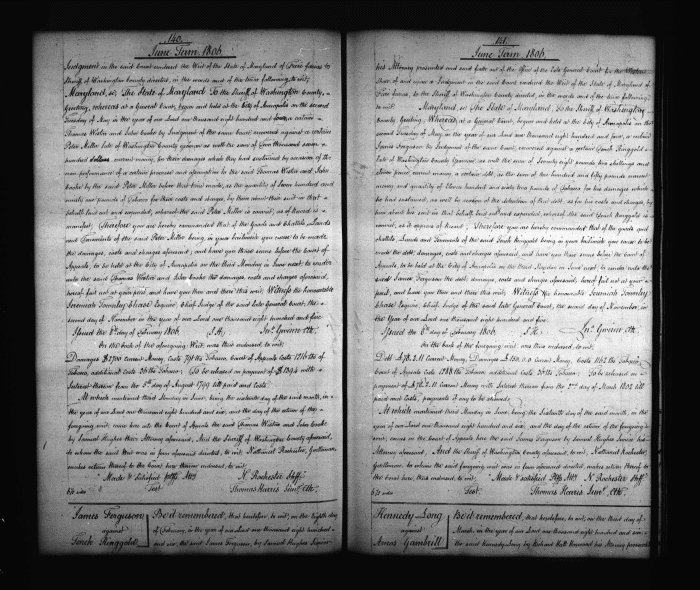 140.
June Term 1806
Judgment in the said Court rendered the Writ of the State of Maryland of Fieri facias to
Sheriff of Washington County directed, in the words and of the tenor following, to wit;
Maryland, ss. The State of Maryland To the Sheriff of Washington County,
Greeting, whereas at a General Court, begun and held at the City of Annapolis on the second
Tuesday of May in the year of our Lord one thousand eight hundred and four, a certain
Thomas Winter and John Cooke by Judgment of the same Court, recovered against a certain
Peter Miller late of Washington County as well the sum of Two thousand seven
hundred dollars, current money, for their damages which they had sustained by occasion of the
non performance of a certain promise and assumption to the said Thomas Winter and John
by the said Peter Miller before that time made, as the quantity of seven hundred and
ninety one pounds of Tobacco for their costs and charges, by them about their suit in that
behalf laid out and expended, whereof the said Peter Miller is convict, as of Record is
manifest; Therefore you are hereby commanded that of the Goods and Chattels, Lands
and Tenements of the said Peter Miller being in your bailiwick you cause to be made
the damages, costs and charges aforesaid, and have you those sums before the Court of
Appeals, to be held at the City of Annapolis on the third Monday in June next, to render
unto the said Thomas Winter and John the damages, costs and charges aforesaid,
hereof fail not at your peril, and have you then and there this writ; Witness the honourable
Jeremiah Townley Chase Esquire, Chief Judge of the said late General Court, the
second day of November in the year of our Lord one thousand eight hundred and five.
Issued the 8th day of February 1806. S. H. Jno. Gwinn Clk.
On the back of the foregoing Writ, was thus endorsed, to wit:
Damages $2700 Current Money, Costs 791 lbs Tobacco, Court of Appeals Costs 1216 lbs of
Tobacco, additional Costs 26 lbs Tobacco. To be released on payment of with
Interest thereon from the 5th day of August 1799 till paid and Costs.
At which mentioned third Monday in June, being the sixteenth day of the said month, in
the year of our Lord one thousand eight hundred and six, and the day of the return of the
foregoing writ, came here into the Court of Appeals the said Thomas Winter and John
by Samuel Hughes their Attorney aforesaid, And the Sheriff of Washington County aforesaid,
to whom the said Writ was in form aforesaid directed, to wit, Nathaniel Rochester, Gentleman,
makes return thereof to the Court here thereon endorsed, to wit;
"Made & Satisfied Plffs Atty N. Rochester Shff.
Test. Thomas Harris Junr. Clk.
James Ferguson
against
Finch Ringgold
Be it remembered, that heretofore, to wit, on the eighth day
of February, in the year of our Lord one thousand eight hundred
and six, the said James Ferguson, by Samuel Hughes Junior
141.
June Term 1806
his Attorney prosecuted and sued forth out of the Office of the late General Court for the Western
Shore of and upon a Judgment in the said Court rendered the Writ of the State of Maryland of
Fieri facias, to the Sheriff of Washington County directed, in the words and of the tenor following
to wit: Maryland ss. The State of Maryland, To the Sheriff of Washington
County, Greeting, Whereas, at a General Court, begun and held at the City of Annapolis on the
second Tuesday of May in the year of our Lord one thousand eight hundred and four, a certain
James Ferguson by Judgment of the same Court, recovered against a certain Ringgold
late of Washington County as well the sum of Seventy eight pounds two shillings and
eleven pence current money a certain debt, as the sum of one hundred and fifty pounds current
money and quantity of Eleven hundred and sixty two pounds of Tobacco for his damages which
he had sustained, as well by reason of the detention of that debt, as for his costs and charges, by
him about his suit in that behalf laid out and expended, whereof the said Ringgold is
convict, as it appears of Record; Therefore you are hereby commanded that of the goods and
chattels Lands and Tenements of the said Ringgold being in your bailiwick you cause to be
made the debt, damages, costs and charges aforesaid, and have you those sums before the Court of
Appeals, to be held at the City of Annapolis on the third Monday in June next, to render unto the
said James Ferguson his debt, damages, costs, and charges aforesaid, hereof fail not at your
peril, and have you then and there this writ. Witness the honorable Jeremiah Townley
Chase Esquire, Chief Judge of the said late General Court, the second day of November, in
the Year of our Lord one thousand eight hundred and five.
Issued the 8th day of February 1806. S. H. Jno. Gwinn Clk.
On the back of the foregoing writ, was thus endorsed, to wit:
Debt £78.2.11 Current Money, Damages £150.0.0 Current Money, Costs 1162 lbs Tobacco,
Court of Appeals Costs 1288 lbs Tobacco additional Costs 26 lbs Tobacco. To be released on
payment of £78.2.11 Current Money with Interest thereon from the 2nd day of March 1802 till
paid and Costs, payments if any to be refunded.
At which mentioned third Monday in June, being the Sixteenth day of the said month, in the
year of our Lord one thousand eight hundred and six, and the day of the return of the foregoing
writ, comes in the Court of Appeals here the said James Ferguson by Samuel Hughes Junior his
Attorney aforesaid, And the Sheriff of Washington County aforesaid, to wit, Nathaniel Rochester,
Gentleman, to whom the said foregoing writ was in form aforesaid directed, makes return thereof to
the Court here thereon endorsed, to wit: "Made & satisfied Plffs Atty N. Rochester Shff.
Test. Thomas Harris Junr. Clk.
Kennedy Long
against
Amos Gambrill
Be it remembered, that heretofore, to wit, on the third day of
March, in the year of our Lord one thousand eight hundred and six
the said Kennedy Long by Hall Harwood his Attorney prosecuted